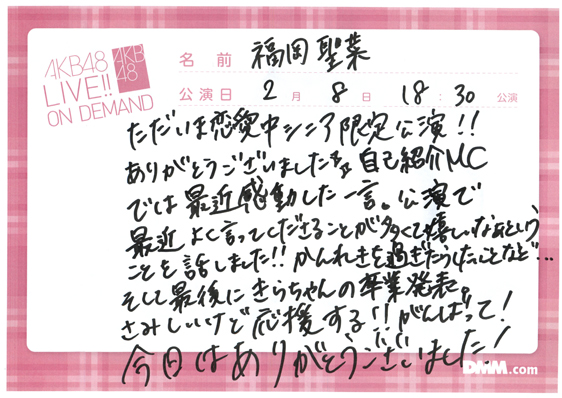 AKB48
LIVE!!
ON DEMAND
AKB
48
名前 福岡聖菜
公演日 2月8日 18:30 公演
ただいま恋愛中シニア限定公演!!
ありがとうございました 自己紹介MC
では最近感動した一言。公演で
最近よく言ってくださることが多くて嬉しいなぁという
ことを話しました!! かんれきを過ぎたらしたことなど…
そして最後にきらちゃんの卒業発表。
さみしいけど応援する!! がんばって!
今日はありがとうございました!
DMM.com